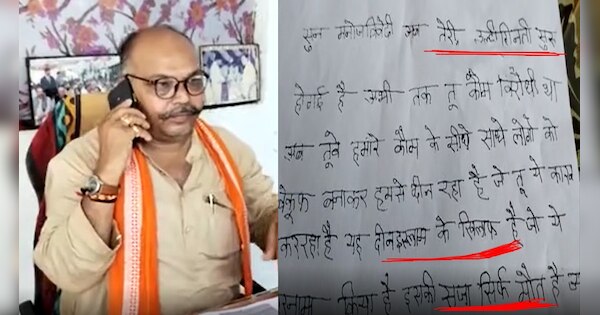 सुन मनोजत्रिवेदी अब तेरी, उल्टीगिनती सुरू
होगई है अभी तक तू कौम विरोधी था
अब तूने हमारे कौम के सीधे साधे लोगों को
बेकूफ बनाकर हमसे छीन रहा है जे तू ये काम
कररहा है यह दीनइस्लाम के खिलाफ है जो ये
किया है इसकी सजा सिर्फ मौत है